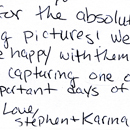 for the absolut
g pictures! We
e happy with them
capturing one o
portant days of
Love,
Stephen + Karma